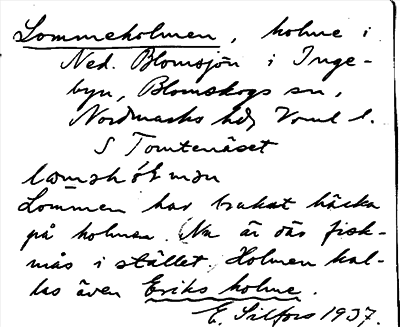 Lommeholmen, holme i
Ned. Blomsjön i Inge-
byn, Blomskogs sn,
Nordmarks hd, Vrml l.
S Tomtenäset
Lommen har brukat häcka
på holmen. Nu är där fisk-
mås i stället. Holmen kal-
las även Eriks holme.
E. Silfors 1937.